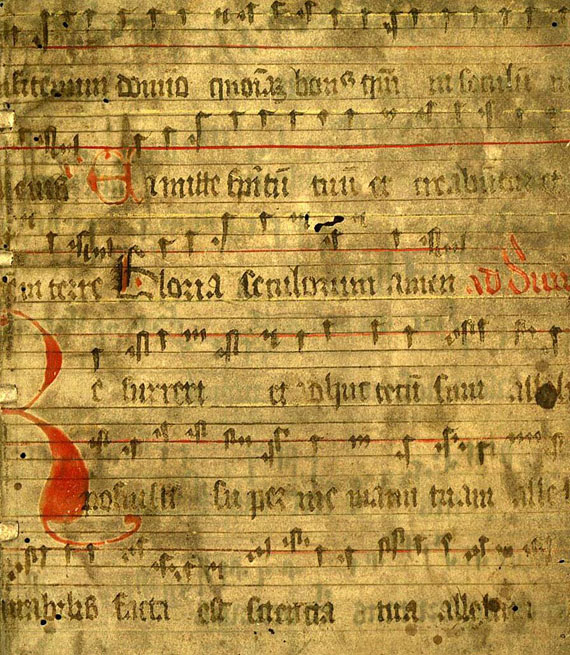 fitemini domino quoniã bonus qm̃ in seculũ
Emitte spm̃ tuũ et creabũtur et
in terre Gloria seculorum amen ad
Resurrexi et adhuc tecũ sum allel
posuisti super me manũ tuam alle
mirabilis facta est sciencia tua alleluia